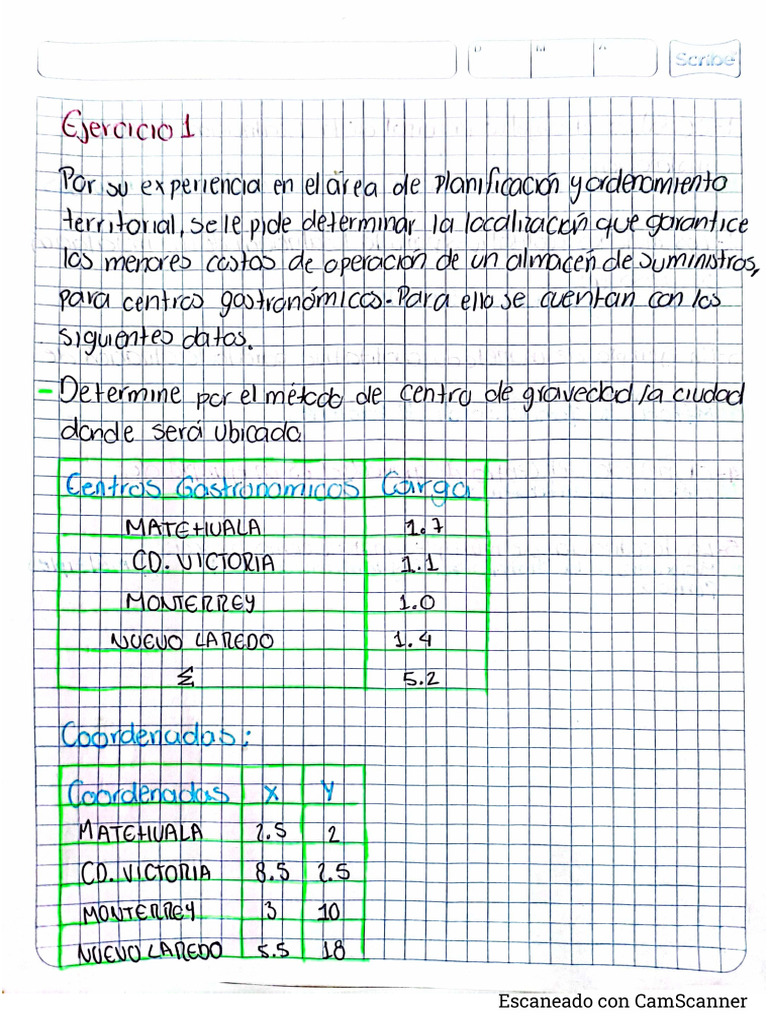 Scribe
Ejercicio 1
Por su experiencia en el área de planificación y ordenamiento
territorial, se le pide determinar la localización que garantice
los menores costos de operación de un almacén de suministros,
para centros gastronómicos. Para ello se cuentan con los
siguientes datos.
- Determine por el método de centro de gravedad la ciudad
donde será ubicado
Centros Gastronomicos Carga
MATEHUALA 1.7
CD. VICTORIA 1.1
MONTERREY 1.0
NUEVO LAREDO 1.4
Σ 5.2
Coordenadas:
Coordenadas X Y
MATEHUALA 2.5 2
CD. VICTORIA 8.5 2.5
MONTERREY 3 10
NUEVO LAREDO 5.5 18
Escaneado con CamScanner